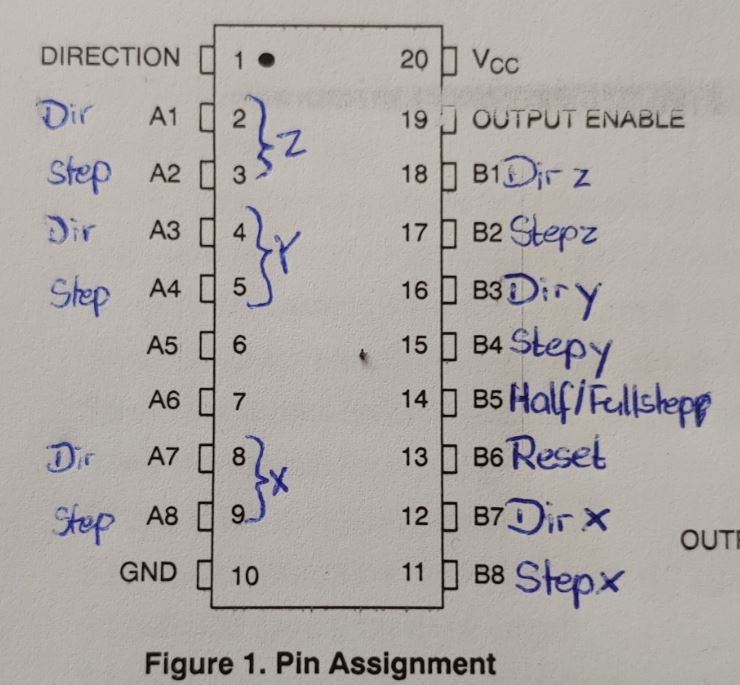 DIRECTION 1 20 VCC
Dir A1 2 19 OUTPUT ENABLE
Step A2 3 Z 18 B1 Dir z
Dir A3 4 17 B2 Stepz
Step A4 5 Y 16 B3 Dir y
A5 6 15 B4 Stepy
A6 7 14 B5 Half/Fullstepp
Dir A7 8 13 B6 Reset
Step A8 9 X 12 B7 Dir x
GND 10 11 B8 Stepx
Figure 1. Pin Assignment